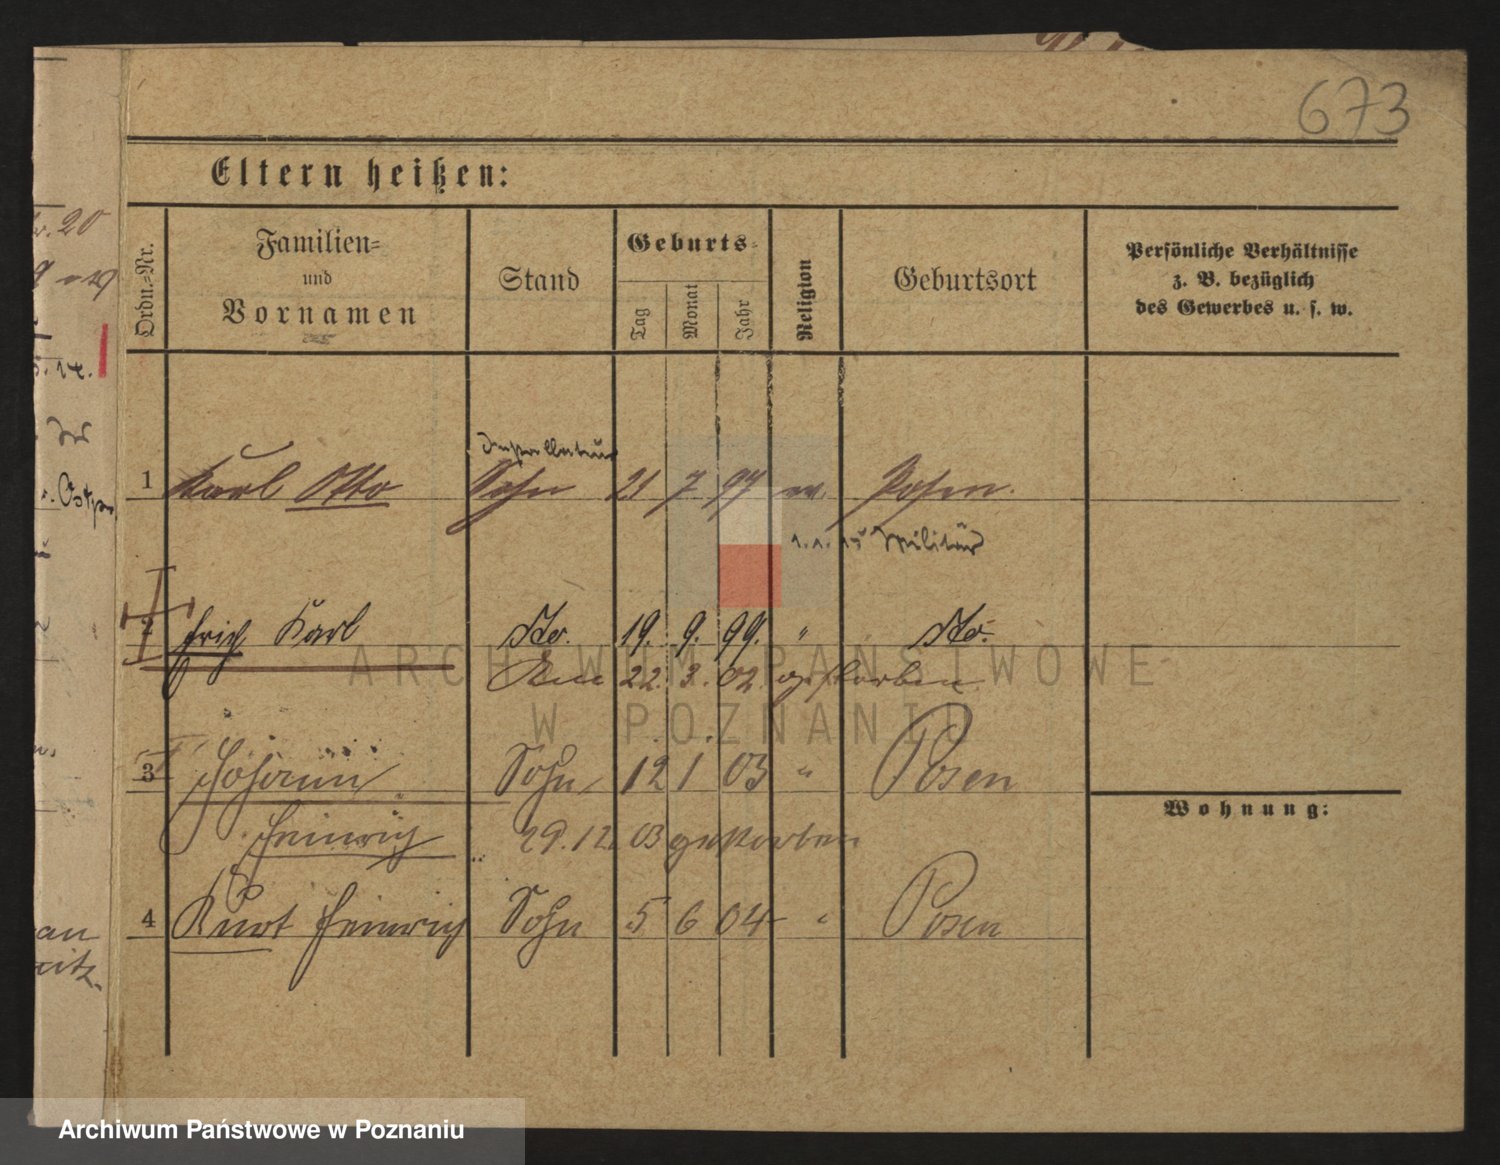 673
Eltern heißen:
Ordn.-Nr.
Familien-
und
Vornamen
Stand
Geburts-
Tag
Monat
Jahr
Religion
Geburtsort
Persönliche Verhältnisse
z. B. bezüglich
des Gewerbes u. s. w.
20
Installateur
1 Karl Otto Sohn 21 7 97 ev. Posen.
1.1.15 Militär
2 Erich Karl Do. 19. 9. 99. " Do.
Am 22. 3. 02. gestorben
3 Johann Sohn 12 1 03 " Posen
Heinrich 29.12 03 gestorben
4 Kurt Heinrich Sohn 5 6 04 " Posen
Wohnung:
ARCHIWUM PAŃSTWOWE
W POZNANIU
Archiwum Państwowe w Poznaniu